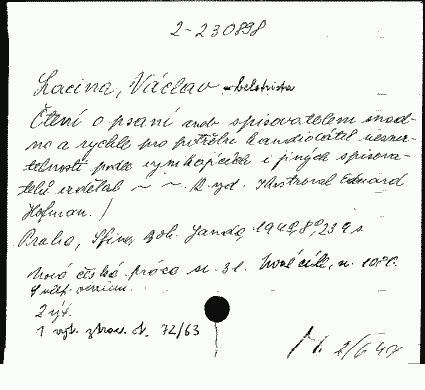 2-230898
Lacina, Václav - beletrista
Čtení o psaní aneb spisovatelem snad-
no a rychle pro potřebu kandidátů nesmr-
telnosti podle vynikajících i jiných spisova-
telů vzdělal ~ ~. 2. vyd. Ilustroval Eduard
Hofman. /
Praha, Sfinx, Boh. Janda, 1949, 8°, 239 s.
Nová česká próza sv. 31.
2 výt.
1 výt. zprac. čt. 72/63